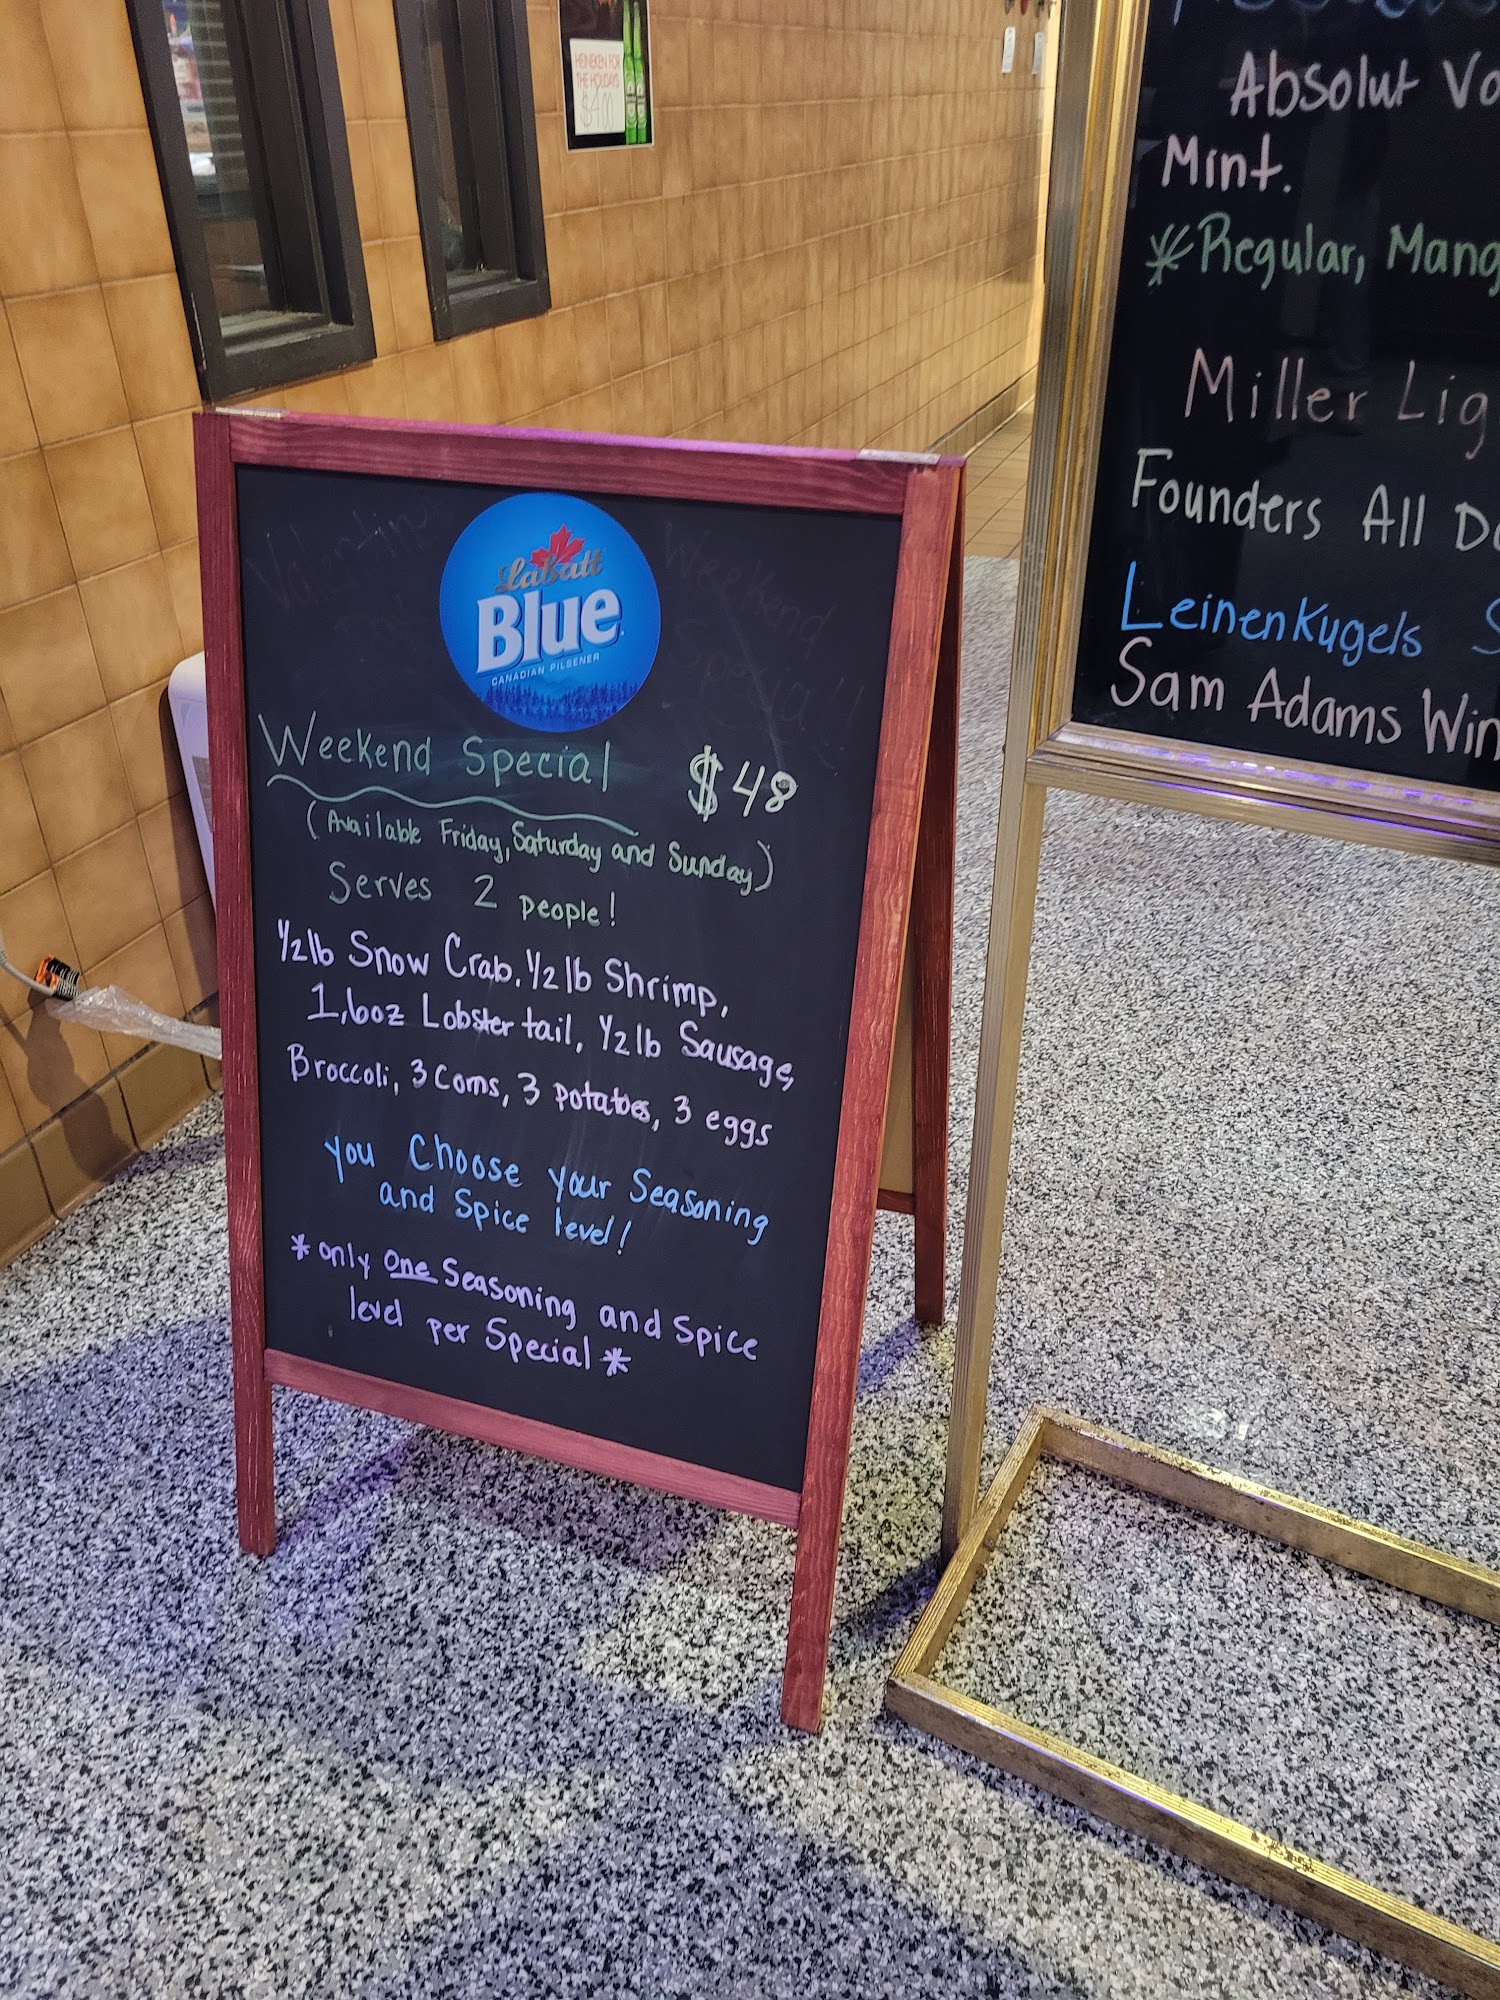 HEINEKEN FOR
THE HOLIDAYS
$4.00
Labatt
Blue
CANADIAN PILSENER
Weekend
Special!
Weekend Special $48
(Available Friday, Saturday and Sunday)
Serves 2 people!
1/2 lb Snow Crab, 1/2 lb Shrimp,
1, 6oz Lobster tail, 1/2 lb Sausage,
Broccoli, 3 Corns, 3 potatoes, 3 eggs
you Choose your Seasoning
and Spice level!
* only One Seasoning and Spice
level per Special *
Absolut Vo
Mint.
* Regular, Mang
Miller Lig
Founders All D
Leinenkugels S
Sam Adams Win